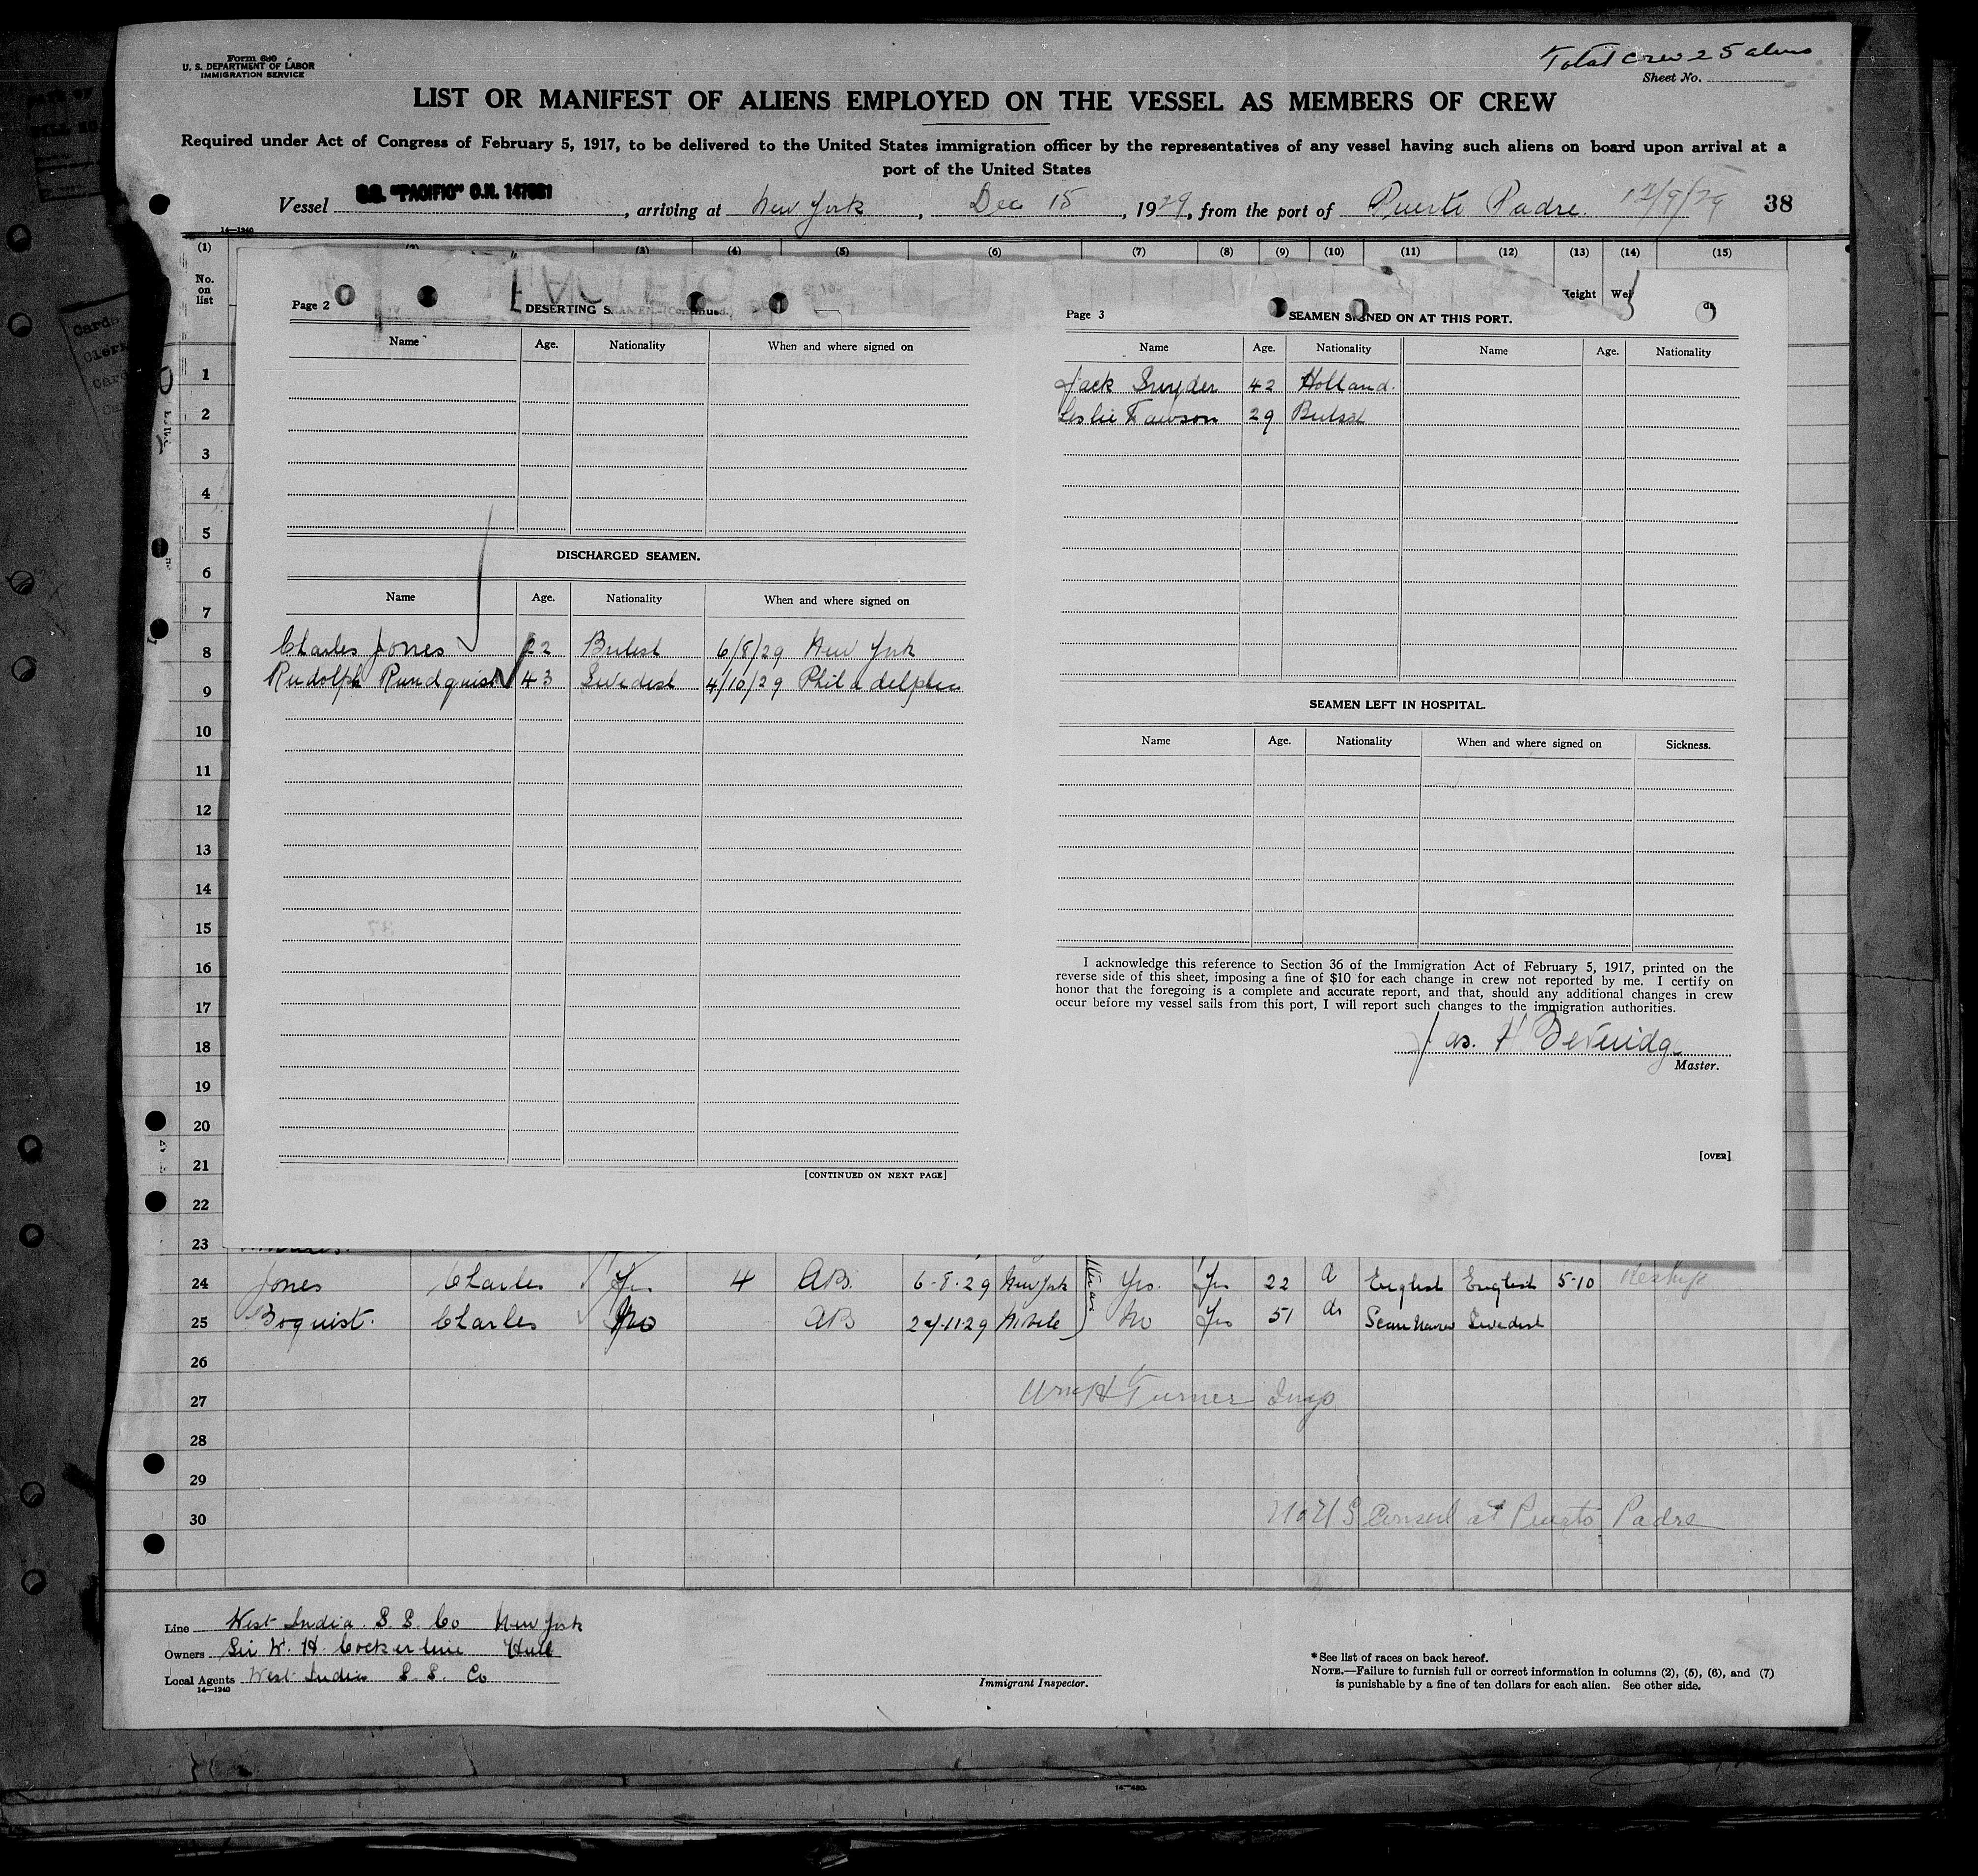 Form 680
U. S. DEPARTMENT OF LABOR
IMMIGRATION SERVICE
Total crew 25 aliens
Sheet No.
LIST OR MANIFEST OF ALIENS EMPLOYED ON THE VESSEL AS MEMBERS OF CREW
Required under Act of Congress of February 5, 1917, to be delivered to the United States immigration officer by the representatives of any vessel having such aliens on board upon arrival at a
port of the United States
Vessel S.S. "PACIFIC" O.N. 147081, arriving at New York, Dec 15, 1929, from the port of Puerto Padre. 12/9/29 38
14—1240
(1) (2) (3) (4) (5) (6) (7) (8) (9) (10) (11) (12) (13) (14) (15)
No. on list
Height Wei
Page 2
DESERTING SEAMEN—(Continued.)
Name Age. Nationality When and where signed on
DISCHARGED SEAMEN.
Name Age. Nationality When and where signed on
Charles Jones 22 British 6/8/29 New York
Rudolph Rundquist 43 Swedish 4/10/29 Philadelphia
[CONTINUED ON NEXT PAGE]
Page 3
SEAMEN SIGNED ON AT THIS PORT.
Name Age. Nationality Name Age. Nationality
Jack Snyder 42 Holland.
Leslie Fawson 29 British
SEAMEN LEFT IN HOSPITAL.
Name Age. Nationality When and where signed on Sickness.
I acknowledge this reference to Section 36 of the Immigration Act of February 5, 1917, printed on the
reverse side of this sheet, imposing a fine of $10 for each change in crew not reported by me. I certify on
honor that the foregoing is a complete and accurate report, and that, should any additional changes in crew
occur before my vessel sails from this port, I will report such changes to the immigration authorities.
Jas. H Beveridge
Master.
[OVER]
1
2
3
4
5
6
7
8
9
10
11
12
13
14
15
16
17
18
19
20
21
22
23
24 Jones Charles Yes 4 AB. 6-8-29 New York Yes. Yes 22 English English 5-10
25 Boquist. Charles No AB 24-11-29 Mobile No Yes 51 Scandinav Swedish
26
27 Wm H Turner Insp
28
29
30 No U S Consul at Puerto Padre
Line West India. S. S. Co New York
Owners Sir W. H. Cockerline Hull
Local Agents West India S. S. Co
14—1240
Immigrant Inspector.
*See list of races on back hereof.
NOTE.—Failure to furnish full or correct information in columns (2), (5), (6), and (7)
is punishable by a fine of ten dollars for each alien. See other side.